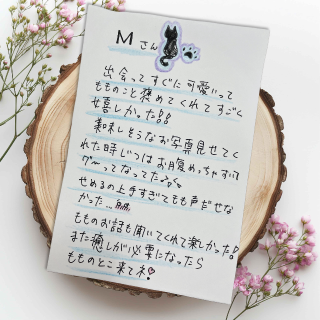 Mさん
出会ってすぐに可愛いって
もものこと褒めてくれてすごく
嬉しかった!!
美味しそうなお写真見せてく
れた時じつはお腹めっちゃすいて
グ〜ってなってた
せめるの上手すぎてもも声だせな
かった...
もものお話も聞いてくれて楽しかった!
また癒しが必要になったら
もものとこ来てネ!